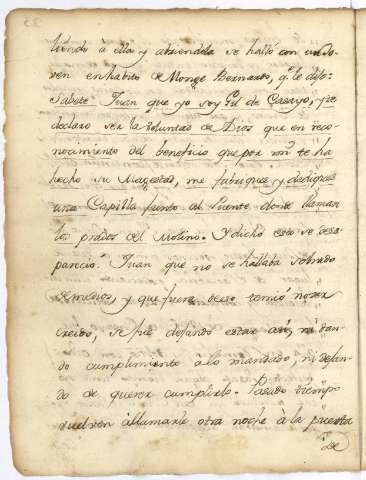 liendo à ella y abriendola se halló con un Jo-
ven en habito de Monge Bernardo, qᵉ. le dijo:
Sabete Juan que yo soy Gil de Casayo, y te
declaro ser la voluntad de Dios que en reco-
nocimiento del beneficio que por mi te ha
hecho su Magestad, me fabriques y dediques
una Capilla junto al Puente donde llaman
los prados del Molino. Y dicho esto se desa-
pareció. Juan que no se hallaba sobrado
de medios, y que fuera de eso temió no ser
creido, se fue dejando estar asi, ni dan-
do cumplimiento à lo mandado, ni dejan-
do de querer cumplirlo. Pasado tiempo
vuelven allamarle otra noche à la puerta
de